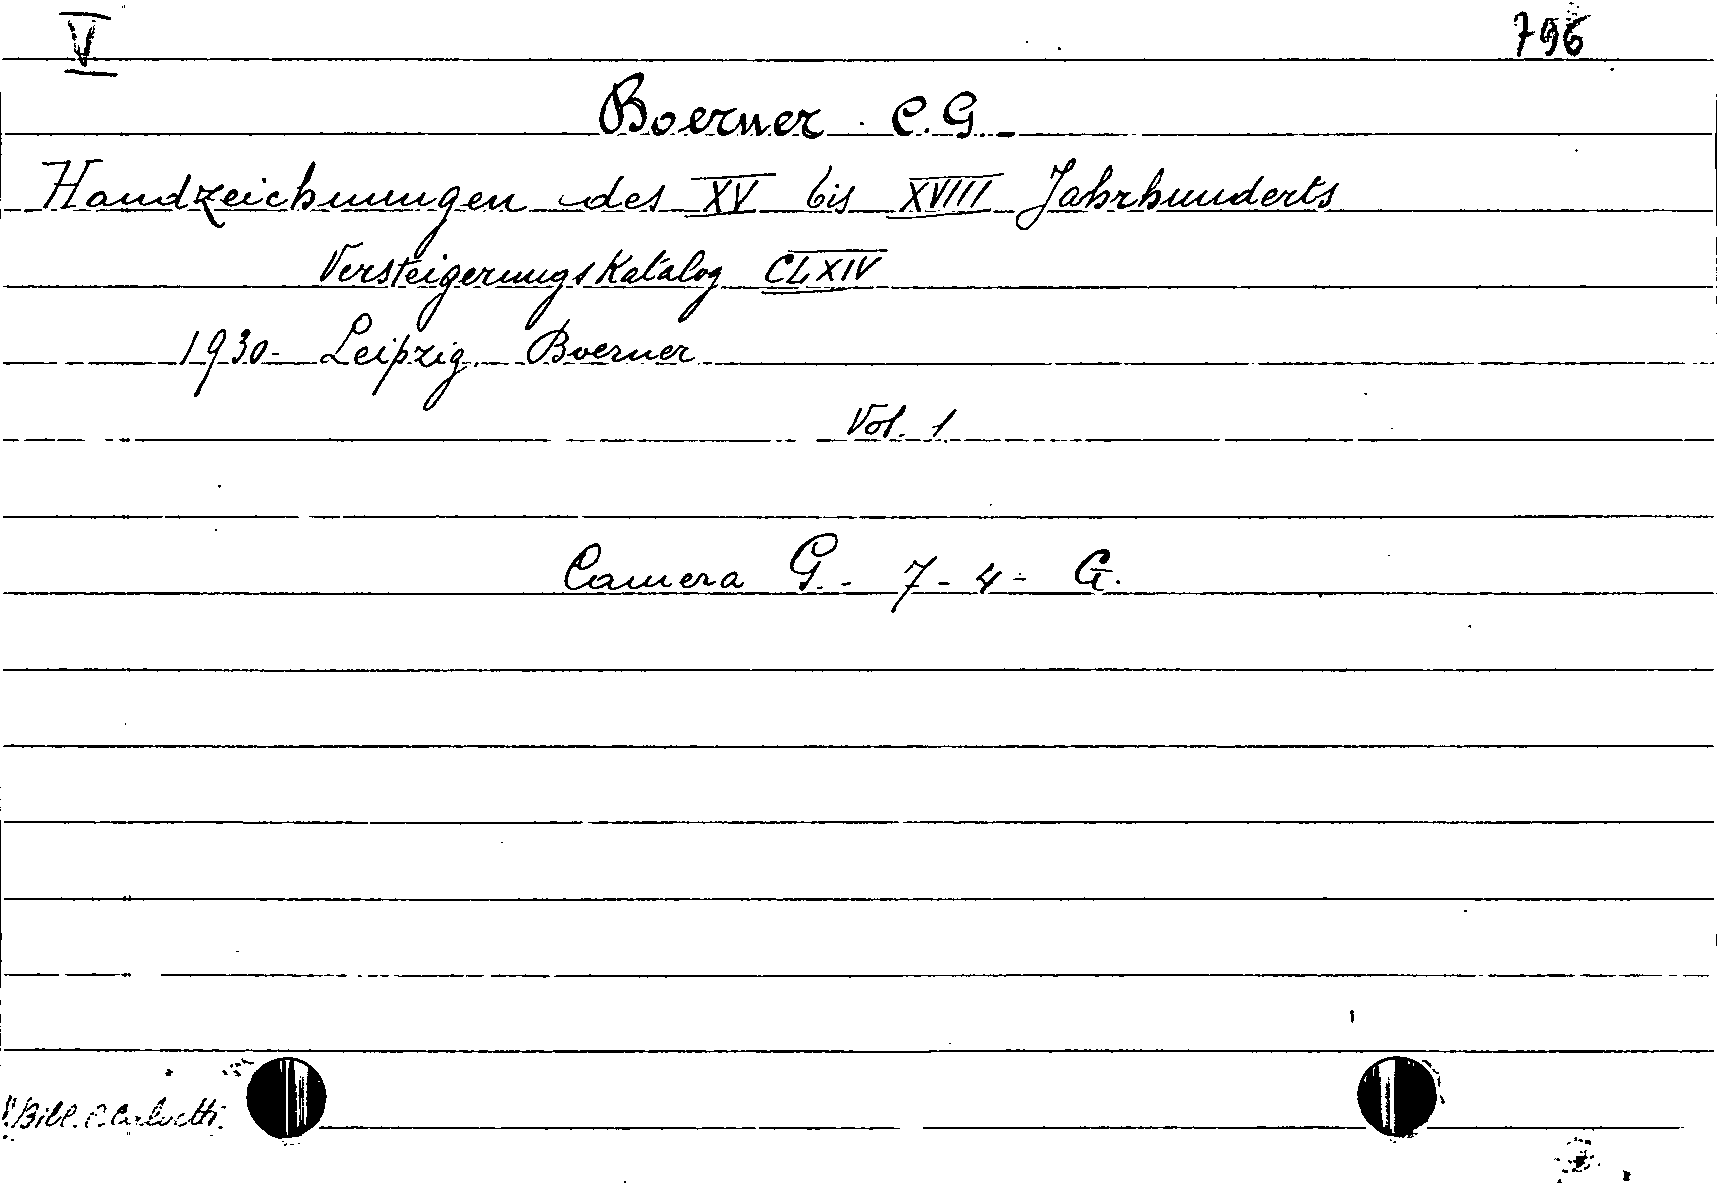 V 796
Boerner C. G. -
Handzeichnungen des XV bis XVIII Jahrhunderts
Versteigerungskatalog CLXIV
1930- Leipzig. Boerner
Vol. 1
Camera G. - 7 - 4 - G.
Bibl.